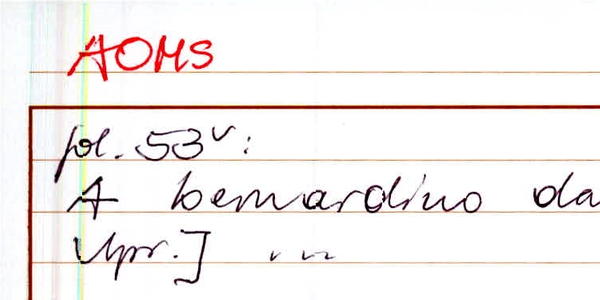 AOMS
fol. 53v:
A bernardino da
...